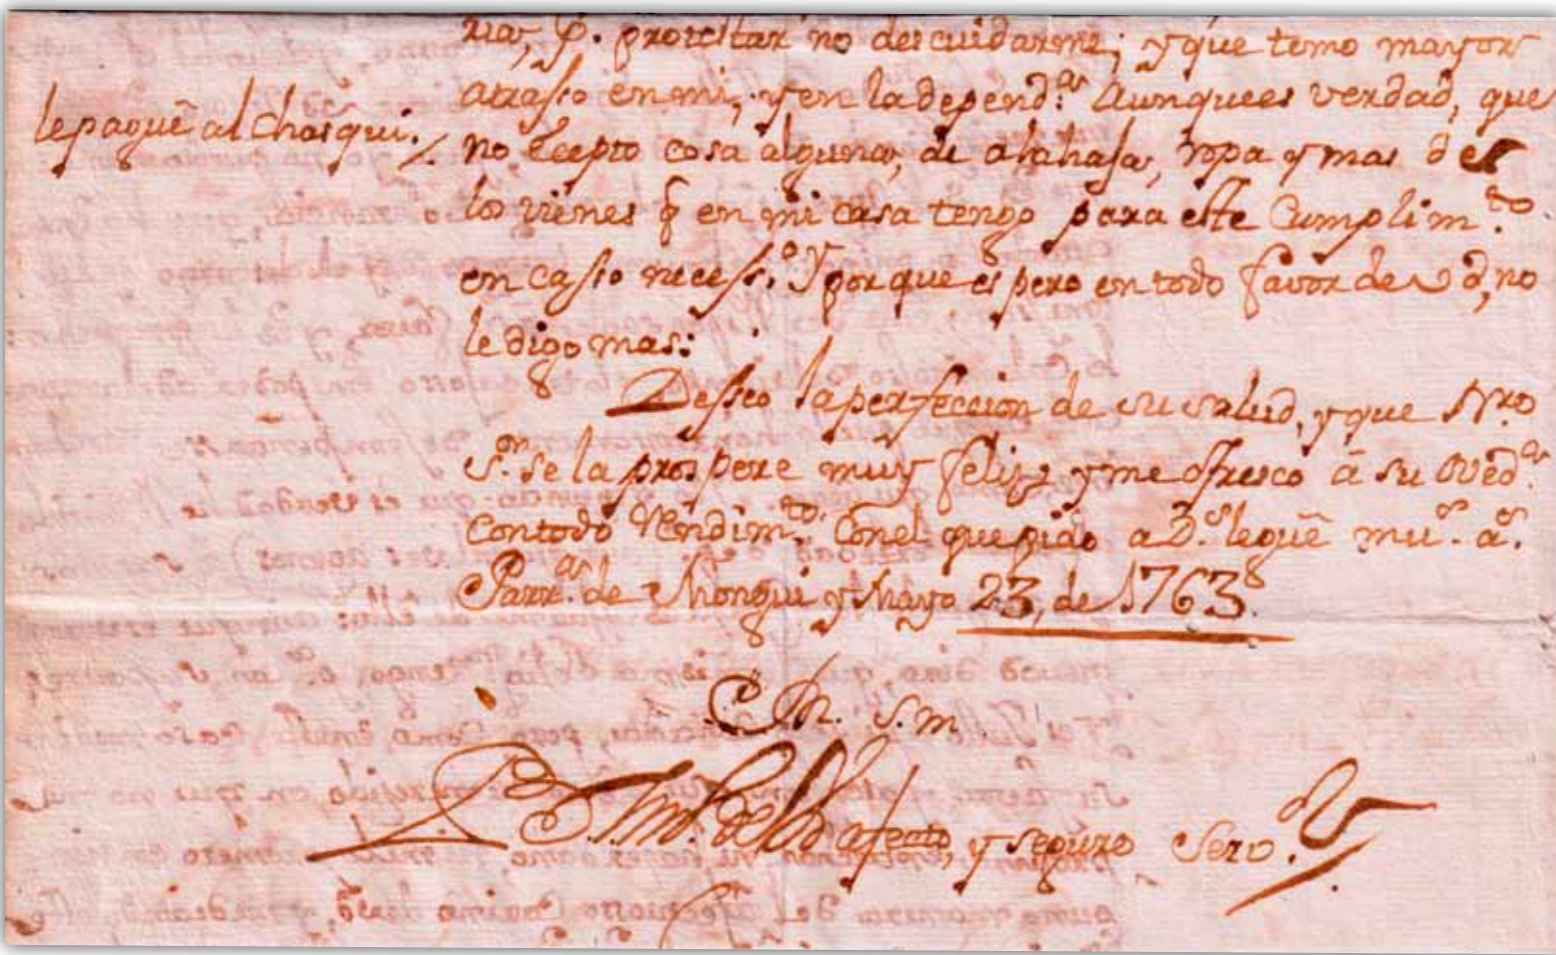 ria, p. procurar no descuidarme; y que temo mayor
atrasso en mi, y en la depend.a Aunque es verdad, que
le pagué al chasqui.
no ecepto cosa alguna, de alahasa, ropa y mas de
los vienes q̃ en mi casa tengo para este Cumplim.to
en casso necess.o Y porque espero en todo favor de Vd, no
le digo mas:
Desseo la perfeccion de su salud, y que Nro
S.or se la prospere muy felis, y me ofresco â su oved.a
con todo Rendim.to Con el que pido a D.s le gûe mu.s a.s
Parr.a de Mongui y Mayo 23, de 1763
s. m.
afecto, y seguro Serv.or